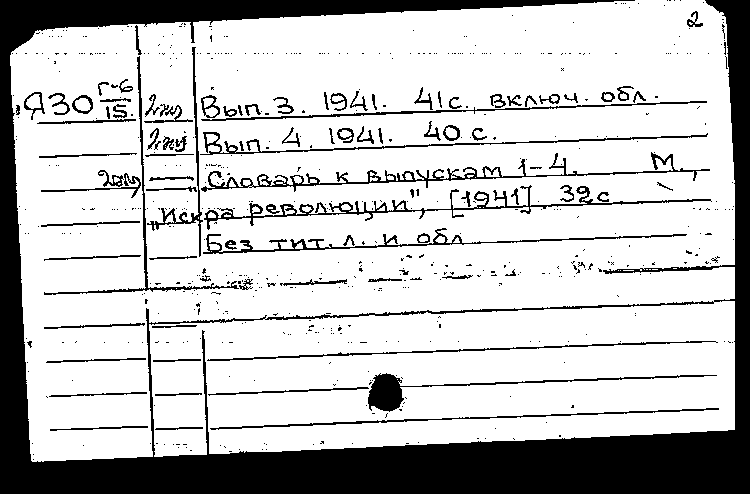 2
ЯЗО Г-6/15. 2экз Вып. 3. 1941. 41 с. включ. обл.
2экз Вып. 4. 1941. 40 с.
2экз — „Словарь к выпускам 1-4. М.,
„Искра революции", [1941] 32 с
Без тит. л. и обл